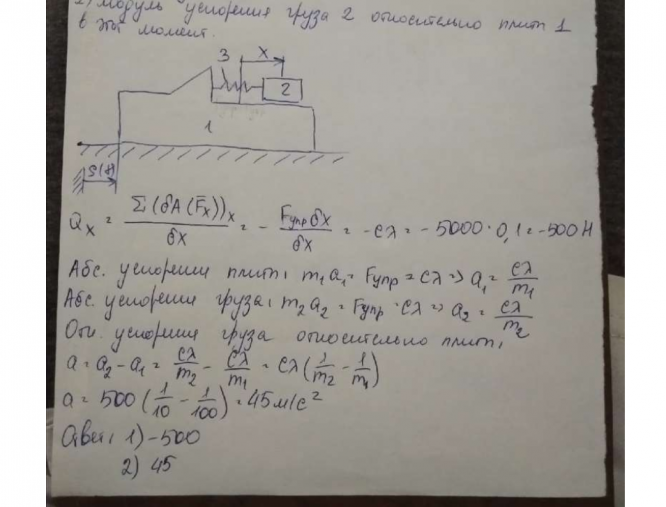 2) модуль ускорения груза 2 относительно плит 1
в этот момент.
3 X
2
1
S(t)
Qx = Σ(δA(F̄x))x / δx = - Fупр δx / δx = -cλ = -5000·0,1 = -500 Н
Абс. ускорении плит, m₁a₁ = Fупр = cλ => a₁ = cλ/m₁
Абс. ускорении груза, m₂a₂ = Fупр = cλ => a₂ = cλ/m₂
Отн. ускорения груза относительно плит,
a = a₂ - a₁ = cλ/m₂ - cλ/m₁ = cλ(1/m₂ - 1/m₁)
a = 500(1/10 - 1/100) = 45 м/с²
Ответ, 1) -500
2) 45